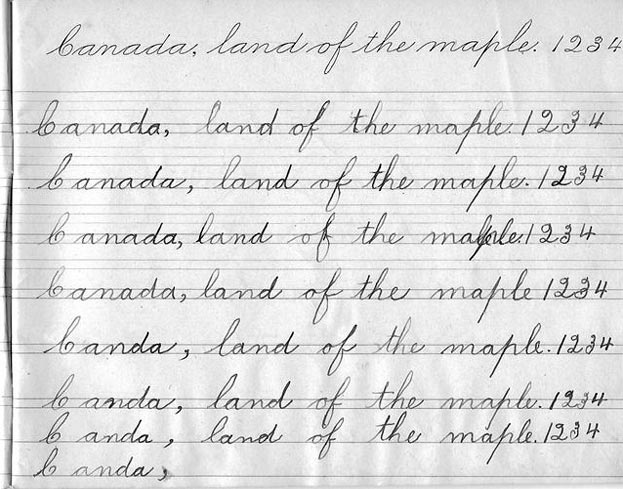 Canada, land of the maple. 1234
Canada, land of the maple. 1234
Canada, land of the maple. 1234
Canada, land of the maple. 1234
Canada, land of the maple 1234
Canda, land of the maple. 1234
Canda, land of the maple. 1234
Canda, land of the maple. 1234
Canda,